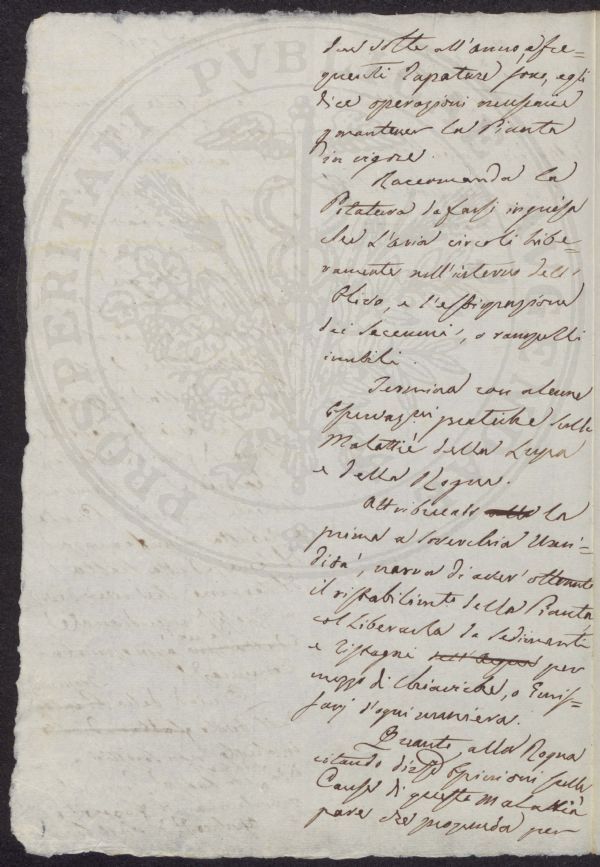 due volte all'anno, e fre=
quenti Zapature sono, egli
dice operazioni necessarie
p mantener la Pianta
in vigore.
Raccomanda la
Potatura da farsi in guisa
che l'aria circoli libe=
ramente nell'interno dell'
Olivo, e l'estirpazione
dei Seccumi, o rampolli
inutili.
Termina con alcune
Osservaz.ni pratiche sulle
Malattie della Lupa
e della Rogna.
Attribuendo la
prima a soverchia Umi=
dità, narra di aver ottenuto
il ristabilim.to della Pianta
col liberarla da sedimenti
e ristagni per
mezzo di Chiaviche, o Emis=
sarj d'ogni maniera.
Quanto, alla Rogna
citando diverse Opinioni sulla
Causa di questa Malattia
pare che propenda per
PROSPERITATI PUBLICAE